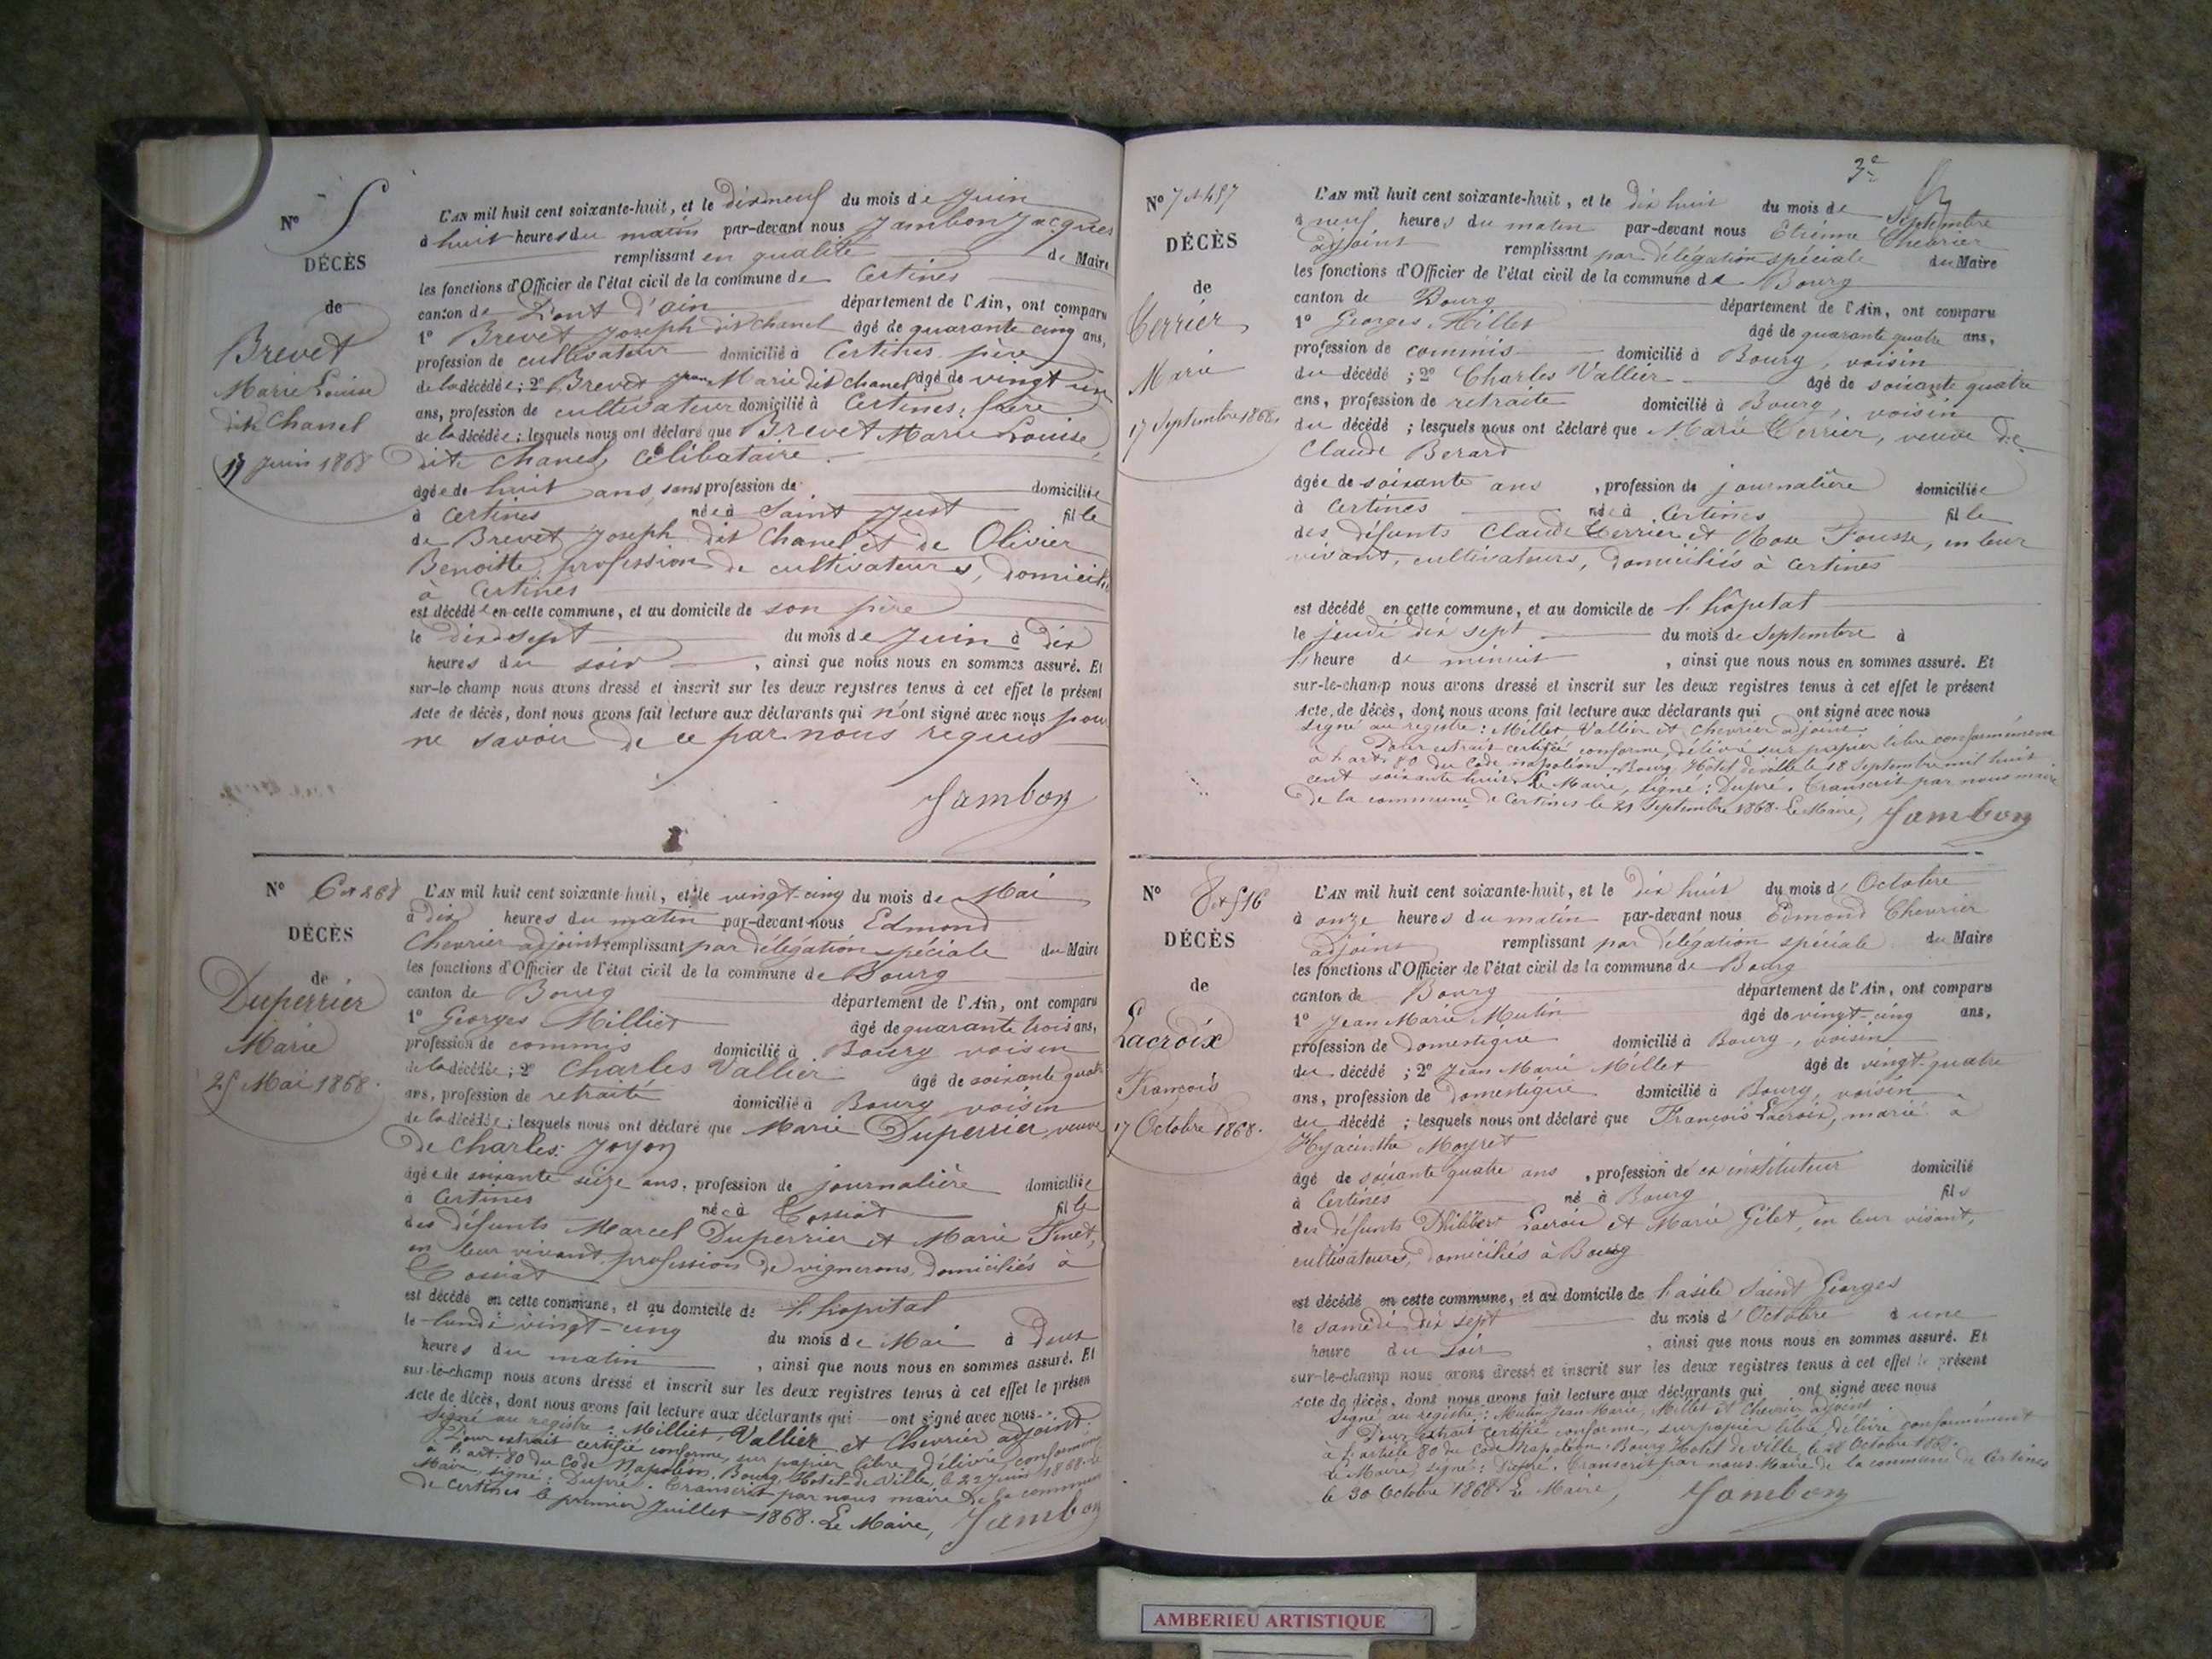 N° 5
DÉCÈS
de
Brevet
Marie Louise
dite Chanel
17 Juin 1868
L'AN mil huit cent soixante-huit, et le dixneuf du mois de Juin
à huit heures du matin par-devant nous Jambon Jacques
remplissant en qualité de Maire
les fonctions d'Officier de l'état civil de la commune de Certines
canton de Pont d'ain département de l'Ain, ont comparu
1° Brevet Joseph dit Chanel âgé de quarante cinq ans,
profession de cultivateur domicilié à Certines, père
de la décédée ; 2° Brevet Jean Marie dit chanel âgé de vingt un
ans, profession de cultivateur domicilié à Certines, frère
de la décédée ; lesquels nous ont déclaré que Brevet Marie Louise,
dite Chanel, célibataire
âgée de huit ans, sans profession de domiciliée
à Certines née à Saint Just fille
de Brevet Joseph dit Chanel et de Olivier
Benoitte, profession de cultivateurs, domiciliés
à Certines
est décédée en cette commune, et au domicile de son père
le dixsept du mois de Juin à dix
heures du soir , ainsi que nous nous en sommes assuré. Et
sur-le champ nous avons dressé et inscrit sur les deux registres tenus à cet effet le présent
Acte de décès, dont nous avons fait lecture aux déclarants qui n'ont signé avec nous pour
ne savoir de ce par nous requis
Jambon
N° 6 et 268
DÉCÈS
de
Duperrier
Marie
25 Mai 1868.
L'AN mil huit cent soixante-huit, et le vingt-cinq du mois de Mai
à dix heures du matin par-devant nous Edmond
Chevrier adjoint remplissant par délégation spéciale du Maire
les fonctions d'Officier de l'état civil de la commune de Bourg
canton de Bourg département de l'Ain, ont comparu
1° Georges Milliet âgé de quarante trois ans,
profession de commis domicilié à Bourg voisin
de la décédée ; 2° Charles Vallier âgé de soixante quatre
ans, profession de retraité domicilié à Bourg voisin
de la décédée ; lesquels nous ont déclaré que Marie Duperrier, veuve
de Charles Joyon
âgée de soixante seize ans, profession de journalière domiciliée
à Certines née à Tossiat fille
des défunts Marcel Duperrier et Marie Tinet,
en leur vivant profession de vignerons, domiciliés à
Tossiat
est décédé en cette commune, et au domicile de l'hôpital
le lundi vingt-cinq du mois de Mai à deux
heures du matin , ainsi que nous nous en sommes assuré. Et
sur-le-champ nous avons dressé et inscrit sur les deux registres tenus à cet effet le présen
Acte de décès, dont nous avons fait lecture aux déclarants qui ont signé avec nous.
Signé au registre : Milliet Vallier et Chevrier adjoint.
Pour extrait certifié conforme, sur papier libre, délivré, conformément
à l'art. 80 du Code Napoléon. Bourg, Hotel-de-Ville, le 22 Juin 1868. Le
Maire, signé : Dupré. Transcrit par nous maire de la commune
de Certines le premier Juillet 1868. Le Maire, Jambon
3e
N° 7 et 457
DÉCÈS
de
Terrier
Marie
17 Septembre 1868.
L'AN mil huit cent soixante-huit, et le dix huit du mois de Septembre
à neuf heures du matin par-devant nous Etienne Chevrier
adjoint remplissant par délégation spéciale du Maire
les fonctions d'Officier de l'état civil de la commune de Bourg
canton de Bourg département de l'Ain, ont comparu
1° Georges Millet âgé de quarante quatre ans,
profession de commis domicilié à Bourg, voisin
du décédé ; 2° Charles Vallier âgé de soixante quatre
ans, profession de retraité domicilié à Bourg, voisin
du décédé ; lesquels nous ont déclaré que Marie Terrier, veuve de
Claude Berard
âgée de soixante ans , profession de journalière domiciliée
à Certines née à Certines fille
des défunts Claude Terrier et Rose Fousse, en leur
vivant, cultivateurs, domiciliés à Certines
est décédé en cette commune, et au domicile de l'hôpital
le jeudi dix sept du mois de Septembre à
l'heure de minuit , ainsi que nous nous en sommes assuré. Et
sur-le-champ nous avons dressé et inscrit sur les deux registres tenus à cet effet le présent
Acte de décès, dont nous avons fait lecture aux déclarants qui ont signé avec nous
Signé au registre : Millet, Vallier et Chevrier adjoint
Pour extrait certifié conforme, délivré sur papier libre conformément
à l'art. 80 du Code napoléon. Bourg Hôtel de ville le 18 Septembre mil huit
cent soixante huit. Le Maire, signé : Dupré. Transcrit par nous maire
de la commune de Certines le 21 Septembre 1868. Le Maire, Jambon
N° 8 et 516
DÉCÈS
de
Lacroix
François
17 Octobre 1868.
L'AN mil huit cent soixante-huit, et le dix huit du mois d'Octobre
à onze heures du matin par-devant nous Edmond Chevrier
adjoint remplissant par délégation spéciale du Maire
les fonctions d'Officier de l'état civil de la commune de Bourg
canton de Bourg département de l'Ain, ont comparu
1° Jean Marie Mutin âgé de vingt-cinq ans,
profession de domestique domicilié à Bourg, voisin
du décédé ; 2° Jean Marie Millet âgé de vingt-quatre
ans, profession de domestique domicilié à Bourg, voisin
du décédé ; lesquels nous ont déclaré que François Lacroix, marié à
Hyacinthe Moyret
âgé de soixante quatre ans , profession de ex instituteur domicilié
à Certines né à Bourg fils
des défunts Philibert Lacroix et Marie Gilet, en leur vivant,
cultivateurs, domiciliés à Bourg
est décédé en cette commune, et au domicile de l'asile Saint Georges
le samedi dix sept du mois d'Octobre à une
heure du soir , ainsi que nous nous en sommes assuré. Et
sur-le-champ nous avons dressé et inscrit sur les deux registres tenus à cet effet le présent
Acte de décès, dont nous avons fait lecture aux déclarants qui ont signé avec nous
Signé au registre : Mutin Jean Marie, Millet et Chevrier adjoint.
Pour extrait certifié conforme, sur papier libre, délivré conformément
à l'article 80 du Code Napoléon. Bourg Hotel de ville, le 28 Octobre 1868.
Le Maire, signé : Dupré. Transcrit par nous Maire de la commune de Certines
le 30 Octobre 1868. Le Maire, Jambon
AMBERIEU ARTISTIQUE